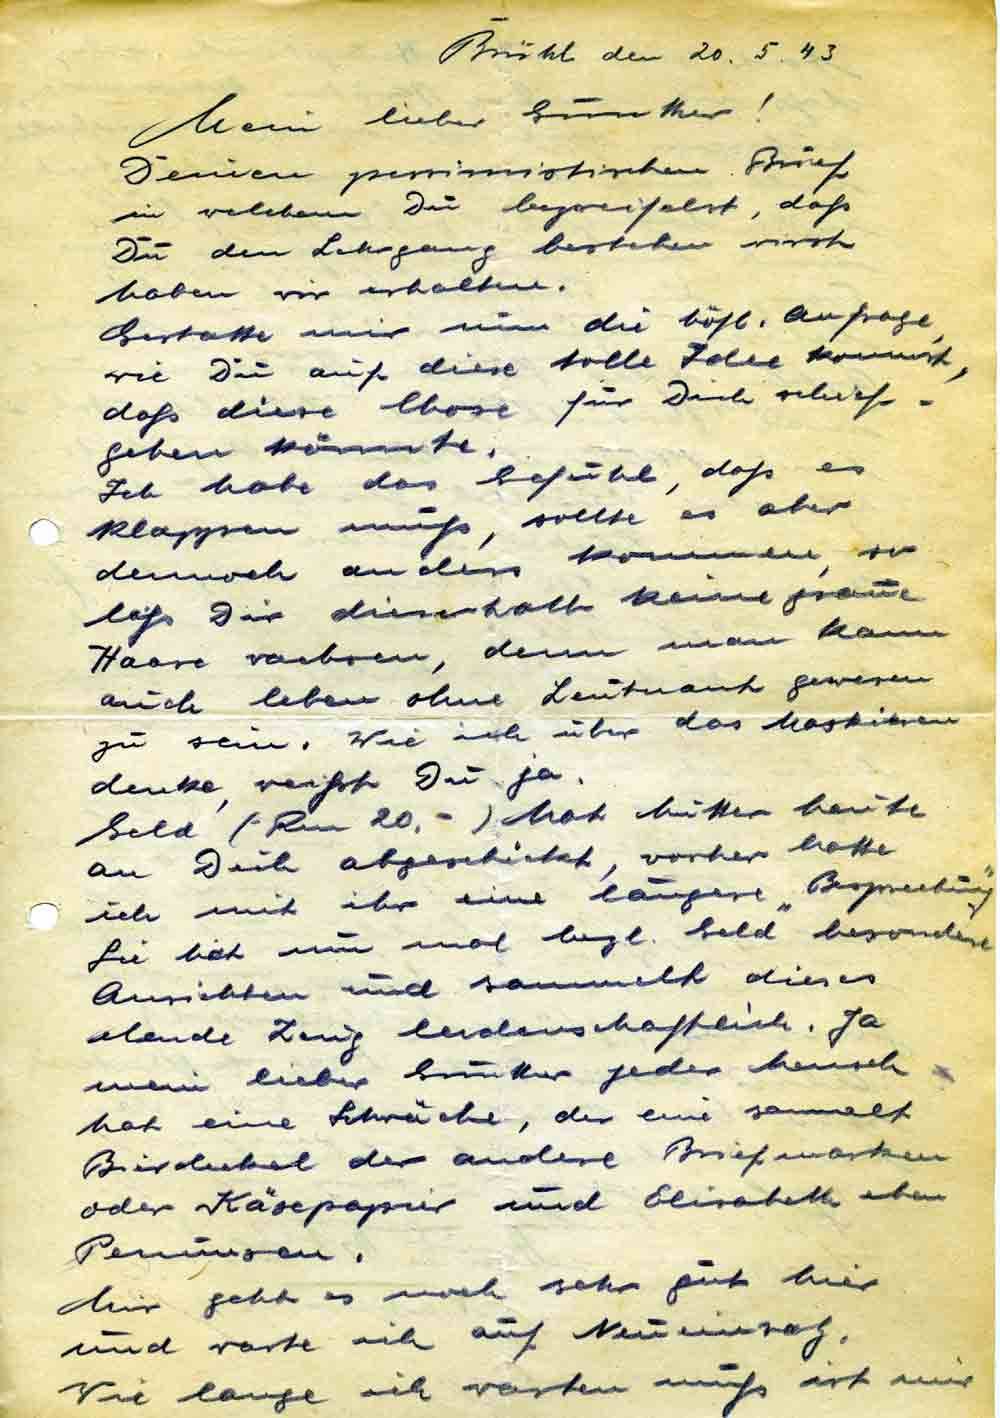 Brühl den 20. 5. 43
Mein lieber Günther!
Deinen pessimistischen Brief
in welchem Du bezweifelst, daß
Du den Lehrgang bestehen wirst
haben wir erhalten.
Gestatte mir nun die höfl. Anfrage,
wie Du auf diese tolle Idee kommst,
daß diese Chose für Dich schief-
gehen könnte.
Ich habe das Gefühl, daß es
klappen muß, sollte es aber
dennoch anders kommen, so
laß Dir dieserhalb keine graue
Haare wachsen, denn man kann
auch leben ohne Leutnant gewesen
zu sein. Wie ich über das
denke, weißt Du ja.
Geld (Rm 20.-) hat Mutter heute
an Dich abgeschickt, vorher hatte
ich mit ihr eine längere „Besprechung"
Sie hat nun mal bezl. Geld besondere
Ansichten und sammelt dieses
elende Zeug leidenschaftlich. Ja
mein lieber Günther jeder Mensch
hat eine Schwäche, der eine sammelt
Bierdeckel der andere Briefmarken
oder Käsepapier und Elisabeth eben
Penunsen.
Mir geht es noch sehr gut hier
und warte ich auf Neueinsatz.
Wie lange ich warten muß ist mir